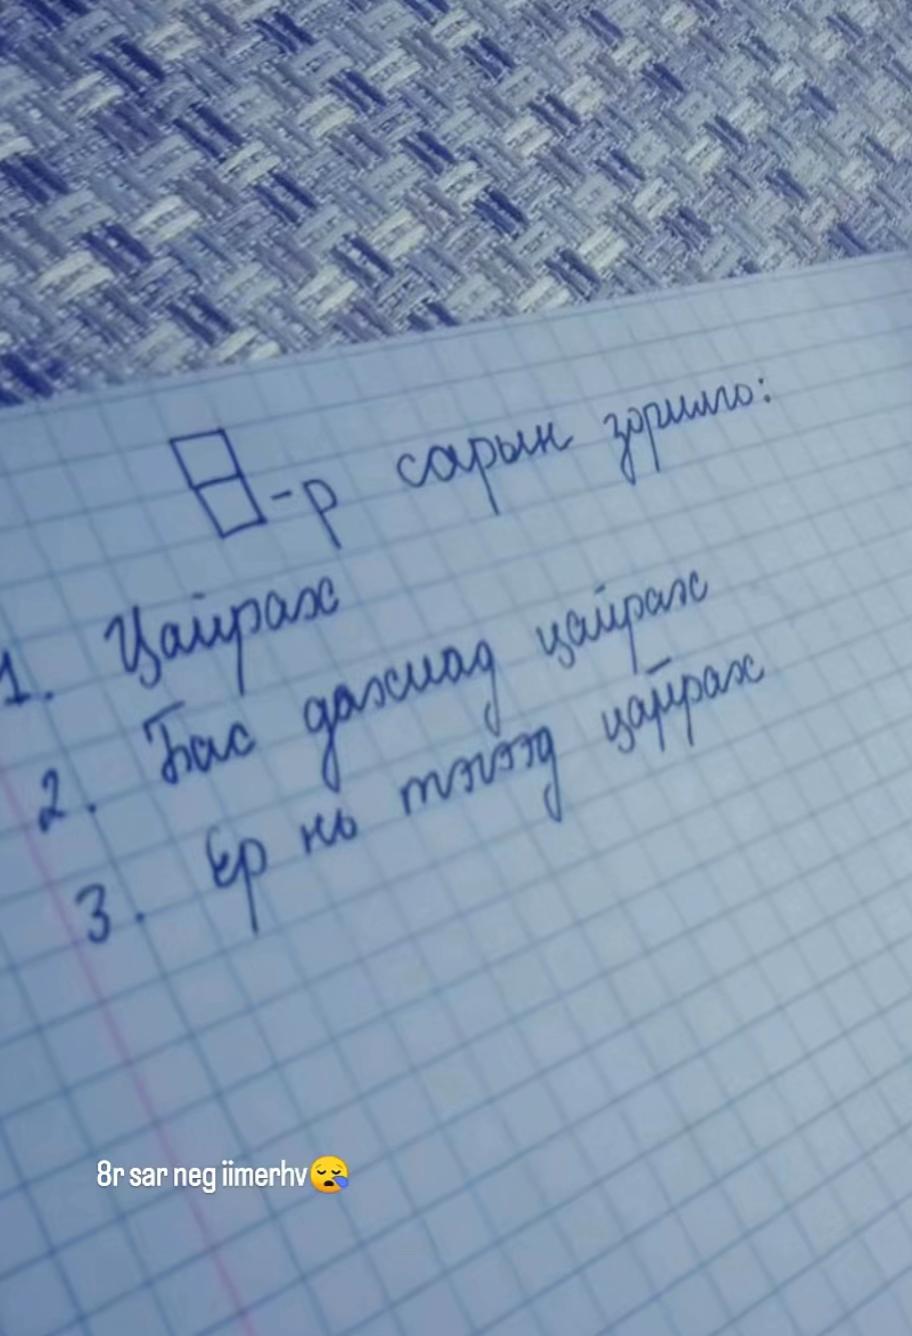 8-р сарын зорилго:
1. Цайрах
2. Бас дахиад цайрах
3. Ер нь тэгээд цайрах
8r sar neg iimerhv😪